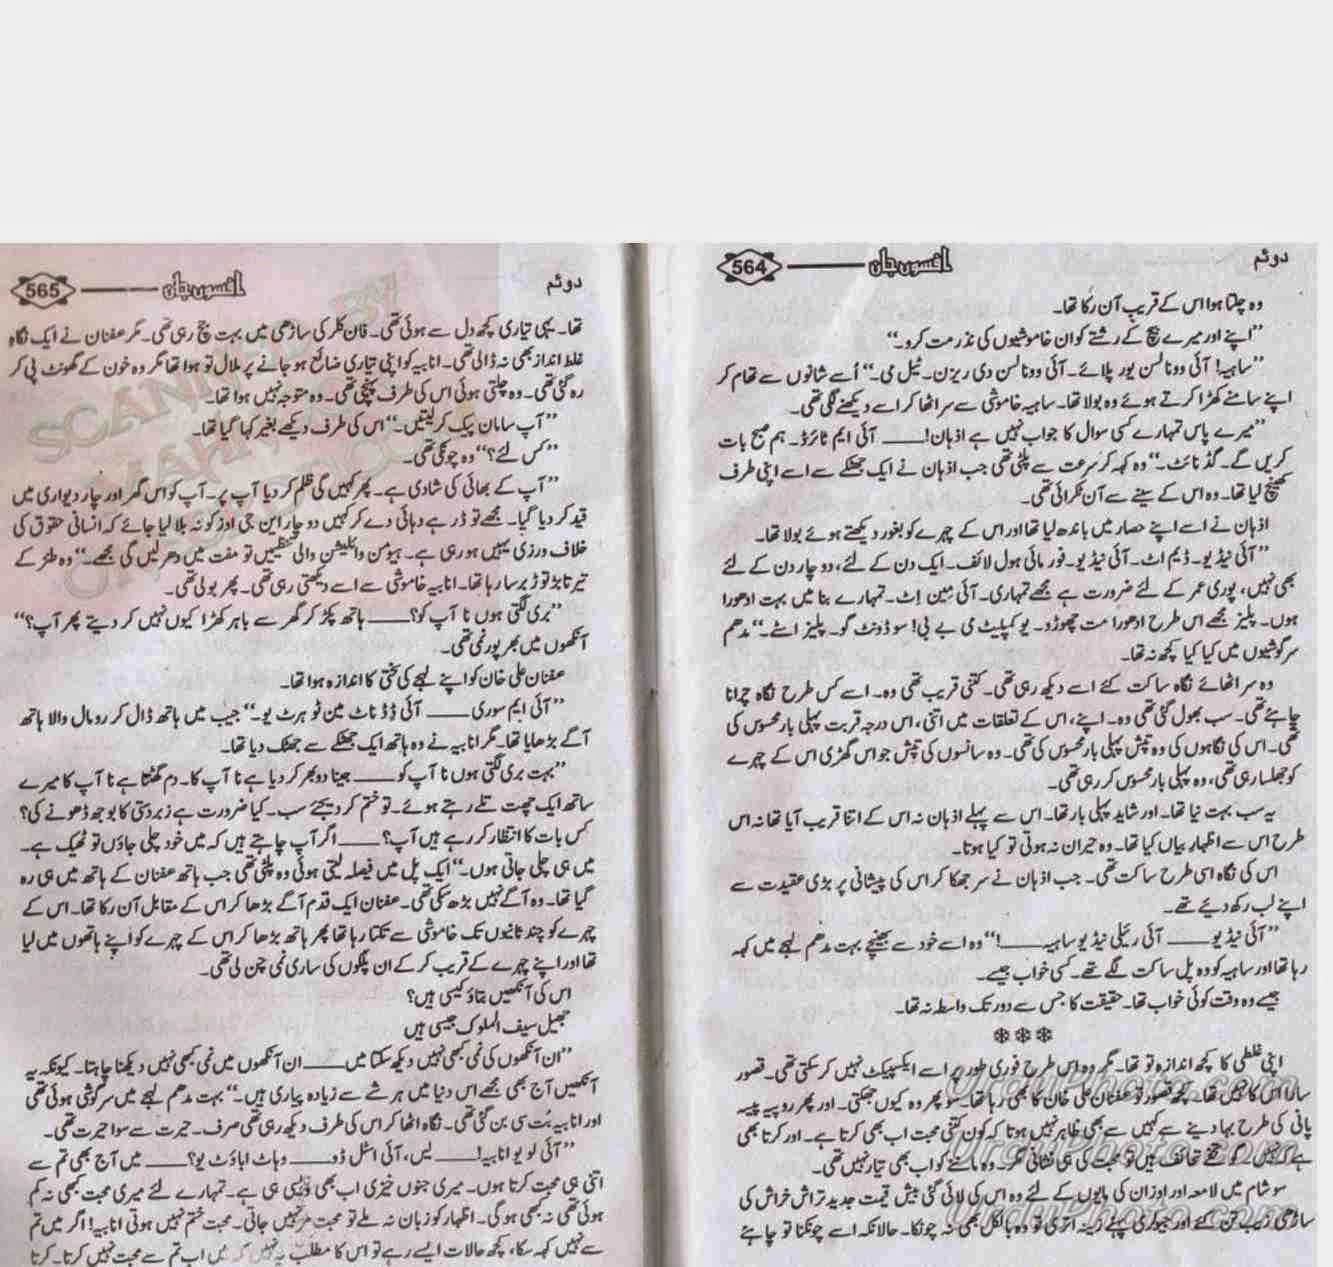 564 افسوں جاں دوئم
وہ چلتا ہوا اس کے قریب آن رُکا تھا۔
”اپنے اور میرے بیچ کے رشتے کو ان خاموشیوں کی نذر مت کرو۔“
”ساہیہ! آئی وونا لسن یور پلائے۔ آئی وونا لسن دی ریزن۔ ٹیل می۔“ اُسے شانوں سے تھام کر
اپنے سامنے کھڑا کرتے ہوئے وہ بولا تھا۔ ساہیہ خاموشی سے سر اٹھا کر اسے دیکھنے لگی تھی۔
”میرے پاس تمہارے کسی سوال کا جواب نہیں ہے اذہان! —— آئی ایم ٹائرڈ۔ ہم صبح بات
کریں گے۔ گڈ نائٹ۔“ وہ کہہ کر سرعت سے پلٹی تھی جب اذہان نے ایک جھٹکے سے اسے اپنی طرف
کھینچ لیا تھا۔ وہ اس کے سینے سے آن ٹکرائی تھی۔
اذہان نے اسے اپنے حصار میں باندھ لیا تھا اور اس کے چہرے کو بغور دیکھتے ہوئے بولا تھا۔
”آئی نیڈ یو۔ ڈیم اٹ۔ آئی نیڈ یو۔ فور مائی ہول لائف۔ ایک دن کے لئے، دو چار دن کے لئے
بھی نہیں، پوری عمر کے لئے ضرورت ہے مجھے تمہاری۔ آئی مین اِٹ۔ تمہارے بنا میں بہت ادھورا
ہوں۔ پلیز مجھے اس طرح ادھورا مت چھوڑو۔ یو کمپلیٹ می بے بی! سو ڈونٹ گو۔ پلیز اسٹے۔“ مدھم
سرگوشیوں میں کیا کیا کچھ نہ تھا۔
وہ سر اٹھائے نگاہ ساکت کئے اسے دیکھ رہی تھی۔ کتنی قریب تھی وہ۔ اسے کس طرح نگاہ چرانا
چاہئے تھی۔ سب بھول گئی تھی وہ۔ اپنے، اس کے تعلقات میں اتنی، اس درجہ قربت پہلی بار محسوس کی
تھی۔ اس کی نگاہوں کی وہ تپش پہلی بار محسوس کی تھی۔ وہ سانسوں کی تپش جو اس گھڑی اس کے چہرے
کو جھلسا رہی تھی، وہ پہلی بار محسوس کر رہی تھی۔
یہ سب بہت نیا تھا۔ اور شاید پہلی بار تھا۔ اس سے پہلے اذہان نہ اس کے اتنا قریب آیا تھا نہ اس
طرح اس سے اظہار بیاں کیا تھا۔ وہ حیران نہ ہوتی تو کیا ہوتا۔
اس کی نگاہ اسی طرح ساکت تھی۔ جب اذہان نے سر جھکا کر اس کی پیشانی پر بڑی عقیدت سے
اپنے لب رکھ دیئے تھے۔
”آئی نیڈ یو —— آئی رئیلی نیڈ یو ساہیہ ——!“ وہ اسے خود سے بھینچے بہت مدھم لہجے میں کہہ
رہا تھا اور ساہیہ کو وہ پل ساکت لگے تھے۔ کسی خواب جیسے۔
جیسے وہ وقت کوئی خواب تھا۔ حقیقت کا جس سے دور تک واسطہ نہ تھا۔
❄❄❄
اپنی غلطی کا کچھ اندازہ تو تھا۔ مگر وہ اس طرح فوری طور پر اسے ایکسپیکٹ نہیں کر سکتی تھی۔ قصور
سارا اس کا نہیں تھا۔ کچھ قصور تو عفنان علی خان کا بھی رہا تھا۔ سو پھر وہ کیوں جھکتی۔ اور پھر روپیہ پیسہ
پانی کی طرح بہا دینے سے کہیں سے بھی ظاہر نہیں ہوتا کہ کون کتنی محبت اب بھی کرتا ہے۔ اور کرتا بھی
ہے کہ نہیں تحفے تحائف ہیں تو محبت کی ہی نشانی مگر۔ وہ ماننے کو اب بھی تیار نہیں تھی۔
سو شام میں لامعہ اور اوزان کی مایوں کے لئے وہ اس کی لائی گئی بیش قیمت جدید تراش خراش کی
ساڑھی زیب تن کئے اور جیولری پہنے زینہ اتری تو وہ بالکل بھی نہ چونکا۔ حالانکہ اسے چونکنا تو چاہئے
UrduPhoto.com
UrduPhoto.com
UrduPhoto.com
565 افسوں جاں دوئم
تھا۔ یہی تیاری کچھ دل سے ہوئی تھی۔ فان کلر کی ساڑھی میں بہت جچ رہی تھی۔ مگر عفنان نے ایک نگاہ
غلط انداز بھی نہ ڈالی تھی۔ انابیہ کو اپنی تیاری ضائع ہو جانے پر ملال تو ہوا تھا مگر وہ خون کے گھونٹ پی کر
رہ گئی تھی۔ وہ چلتی ہوئی اس کی طرف پہنچی تھی۔ وہ متوجہ نہیں ہوا تھا۔
”آپ سامان پیک کر لیتیں۔“ اس کی طرف دیکھے بغیر کہا گیا تھا۔
”کس لئے؟“ وہ چونکی تھی۔
”آپ کے بھائی کی شادی ہے۔ پھر کہیں گی ظلم کر دیا آپ پر۔ آپ کو اس گھر اور چار دیواری میں
قید کر دیا گیا۔ مجھے تو ڈر ہے دہائی دے کر کہیں دو چار این جی اوز کو نہ بلا لیا جائے کہ انسانی حقوق کی
خلاف ورزی یہیں ہو رہی ہے۔ ہیومن وائلیشن والی تنظیمیں تو مفت میں دھر لیں گی مجھے۔“ وہ طنز کے
تیر تابڑ توڑ برسا رہا تھا۔ انابیہ خاموشی سے اسے دیکھتی رہی تھی۔ پھر بولی تھی۔
”بری لگتی ہوں نا آپ کو؟ —— ہاتھ پکڑ کر گھر سے باہر کھڑا کیوں نہیں کر دیتے پھر آپ؟“
آنکھوں میں بھرپور نمی تھی۔
عفنان علی خان کو اپنے لہجے کی سختی کا اندازہ ہوا تھا۔
”آئی ایم سوری —— آئی ڈڈ ناٹ مین ٹو ہرٹ یو۔“ جیب میں ہاتھ ڈال کر رومال والا ہاتھ
آگے بڑھایا تھا۔ مگر انابیہ نے وہ ہاتھ ایک جھٹکے سے جھٹک دیا تھا۔
”بہت بری لگتی ہوں نا آپ کو —— جینا دوبھر کر دیا ہے نا آپ کا۔ دم گھٹتا ہے نا آپ کا میرے
ساتھ ایک چھت تلے رہتے ہوئے۔ تو ختم کر دیجئے سب۔ کیا ضرورت ہے زبردستی کا بوجھ ڈھونے کی؟
کس بات کا انتظار کر رہے ہیں آپ؟ —— اگر آپ چاہتے ہیں کہ میں خود چلی جاؤں تو ٹھیک ہے۔
میں ہی چلی جاتی ہوں۔“ ایک پل میں فیصلہ لیتی ہوئی وہ پلٹی تھی جب ہاتھ عفنان کے ہاتھ میں ہی رہ
گیا تھا۔ وہ آگے نہیں بڑھ سکی تھی۔ عفنان ایک قدم آگے بڑھا کر اس کے مقابل آن رکا تھا۔ اس کے
چہرے کو چند ثانیوں تک خاموشی سے تکتا رہا تھا پھر ہاتھ بڑھا کر اس کے چہرے کو اپنے ہاتھوں میں لیا
تھا اور اپنے چہرے کے قریب کر کے ان پلکوں کی ساری نمی چن لی تھی۔
اس کی آنکھیں بتاؤ کیسی ہیں؟
جھیل سیف الملوک جیسی ہیں
”ان آنکھوں کی نمی کبھی نہیں دیکھ سکتا میں —— ان آنکھوں میں نمی کبھی نہیں دیکھنا چاہتا۔ کیونکہ یہ
آنکھیں آج بھی مجھے اس دنیا میں ہر شے سے زیادہ پیاری ہیں۔“ بہت مدھم لہجے میں سرگوشی ہوئی تھی
اور انابیہ بُت سی بن گئی تھی۔ نگاہ اٹھا کر اس کی طرف دیکھ رہی تھی صرف۔ حیرت سے سوا حیرت تھی۔
”آئی لو یو انابیہ! —— یس، آئی اسٹل ڈو —— وہاٹ اباؤٹ یو؟ —— میں آج بھی تم سے
اتنی ہی محبت کرتا ہوں۔ میری جنوں خیزی اب بھی ویسی ہی ہے۔ تمہارے لئے میری محبت کبھی نہ کم
ہوئی تھی نہ کبھی ہو گی۔ اظہار کو زبان نہ ملے تو محبت مر نہیں جاتی۔ محبت ختم نہیں ہوتی انابیہ! اگر میں تم
سے نہیں کہہ سکا، کچھ حالات ایسے رہے تو اس کا مطلب یہ نہیں کہ میں اب تم سے محبت نہیں کرتا۔ کرتا